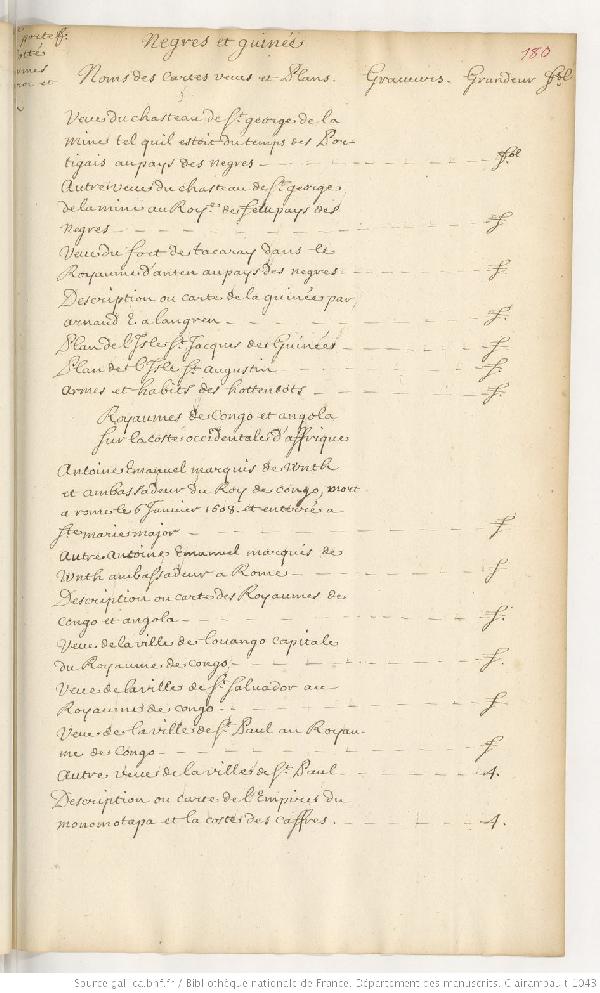 Negres et guinée
180
Noms des Cartes veues et Plans. Graueurs. Grandeur
Veue du chasteau de St. george de la
mine tel quil estoit du temps des Por-
tigais au pays des negres
Autre veue du chasteau de St. george
de la mine au Roy.e de fetu pays des
negres
Veue du fort de tacaray dans le
Royaume d'anten au pays des negres
Description ou carte de la guinée par
arnaud F. a langren
Plan de l'Isle St. Jacques des Guinées
Plan des l'Isle St. augustin
armes et habits des hottentots
Royaumes de Congo et angola
sur la coste occidentale d'affrique
Antoine Emanuel marquis de Wnth
et ambassadeur du Roy de congo, mort
a rome le 6 Januier 1608. et enterré a
ste marie major
Autre Antoine Emanuel marquis de
Wnth ambassadeur a Rome
Description ou carte des Royaumes de
Congo et angola
Veue de la ville de louango capitale
du Royaume de congo
Veue de la ville de St. Salvador au
Royaume de congo
Veue de la ville de St. Paul au Royau-
me de Congo
Autre veue de la ville de St. Paul 4.
Description ou carte de l'Empire du
monomotapa et la coste des caffres. 4.
Source gallica.bnf.fr / Bibliothèque nationale de France. Département des manuscrits. Clairambault 1043